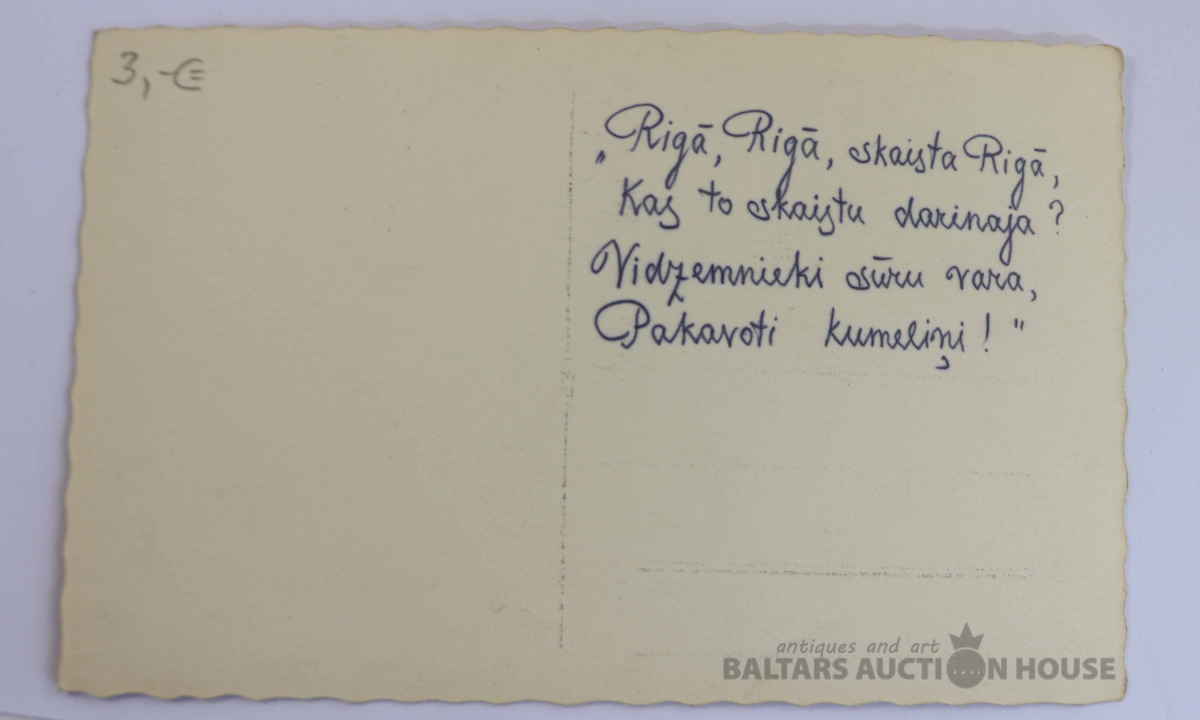 3,-€
„Rigā, Rigā, skaista Rigā,
Kas to skaistu darinaja?
Vidzemnieki sūru vara,
Pakavoti kumeliņi!"
antiques and art
BALTARS AUCTION HOUSE